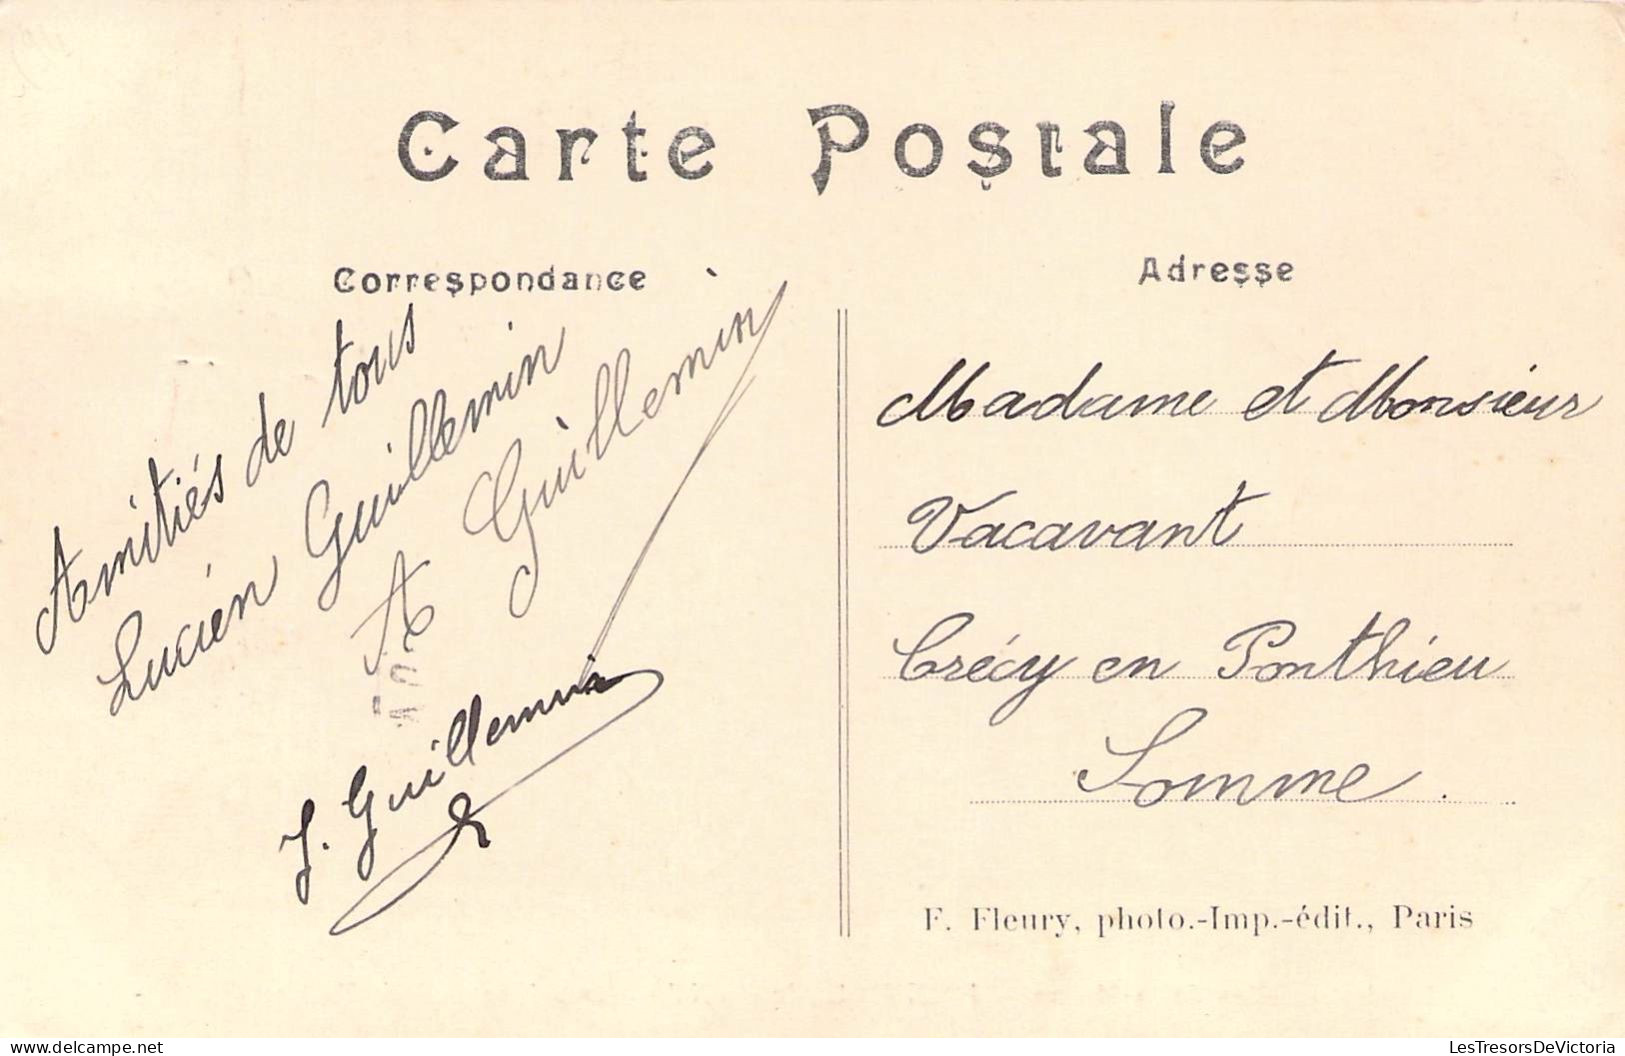 Carte Postale
Correspondance
Amitiés de tous
Lucien Guillemin
A Guillemin
J. Guillemin
Adresse
Madame et Monsieur
Vacavant
Crécy en Ponthieu
Somme.
F. Fleury, photo.-Imp.-édit., Paris
LesTresorsDeVictoria